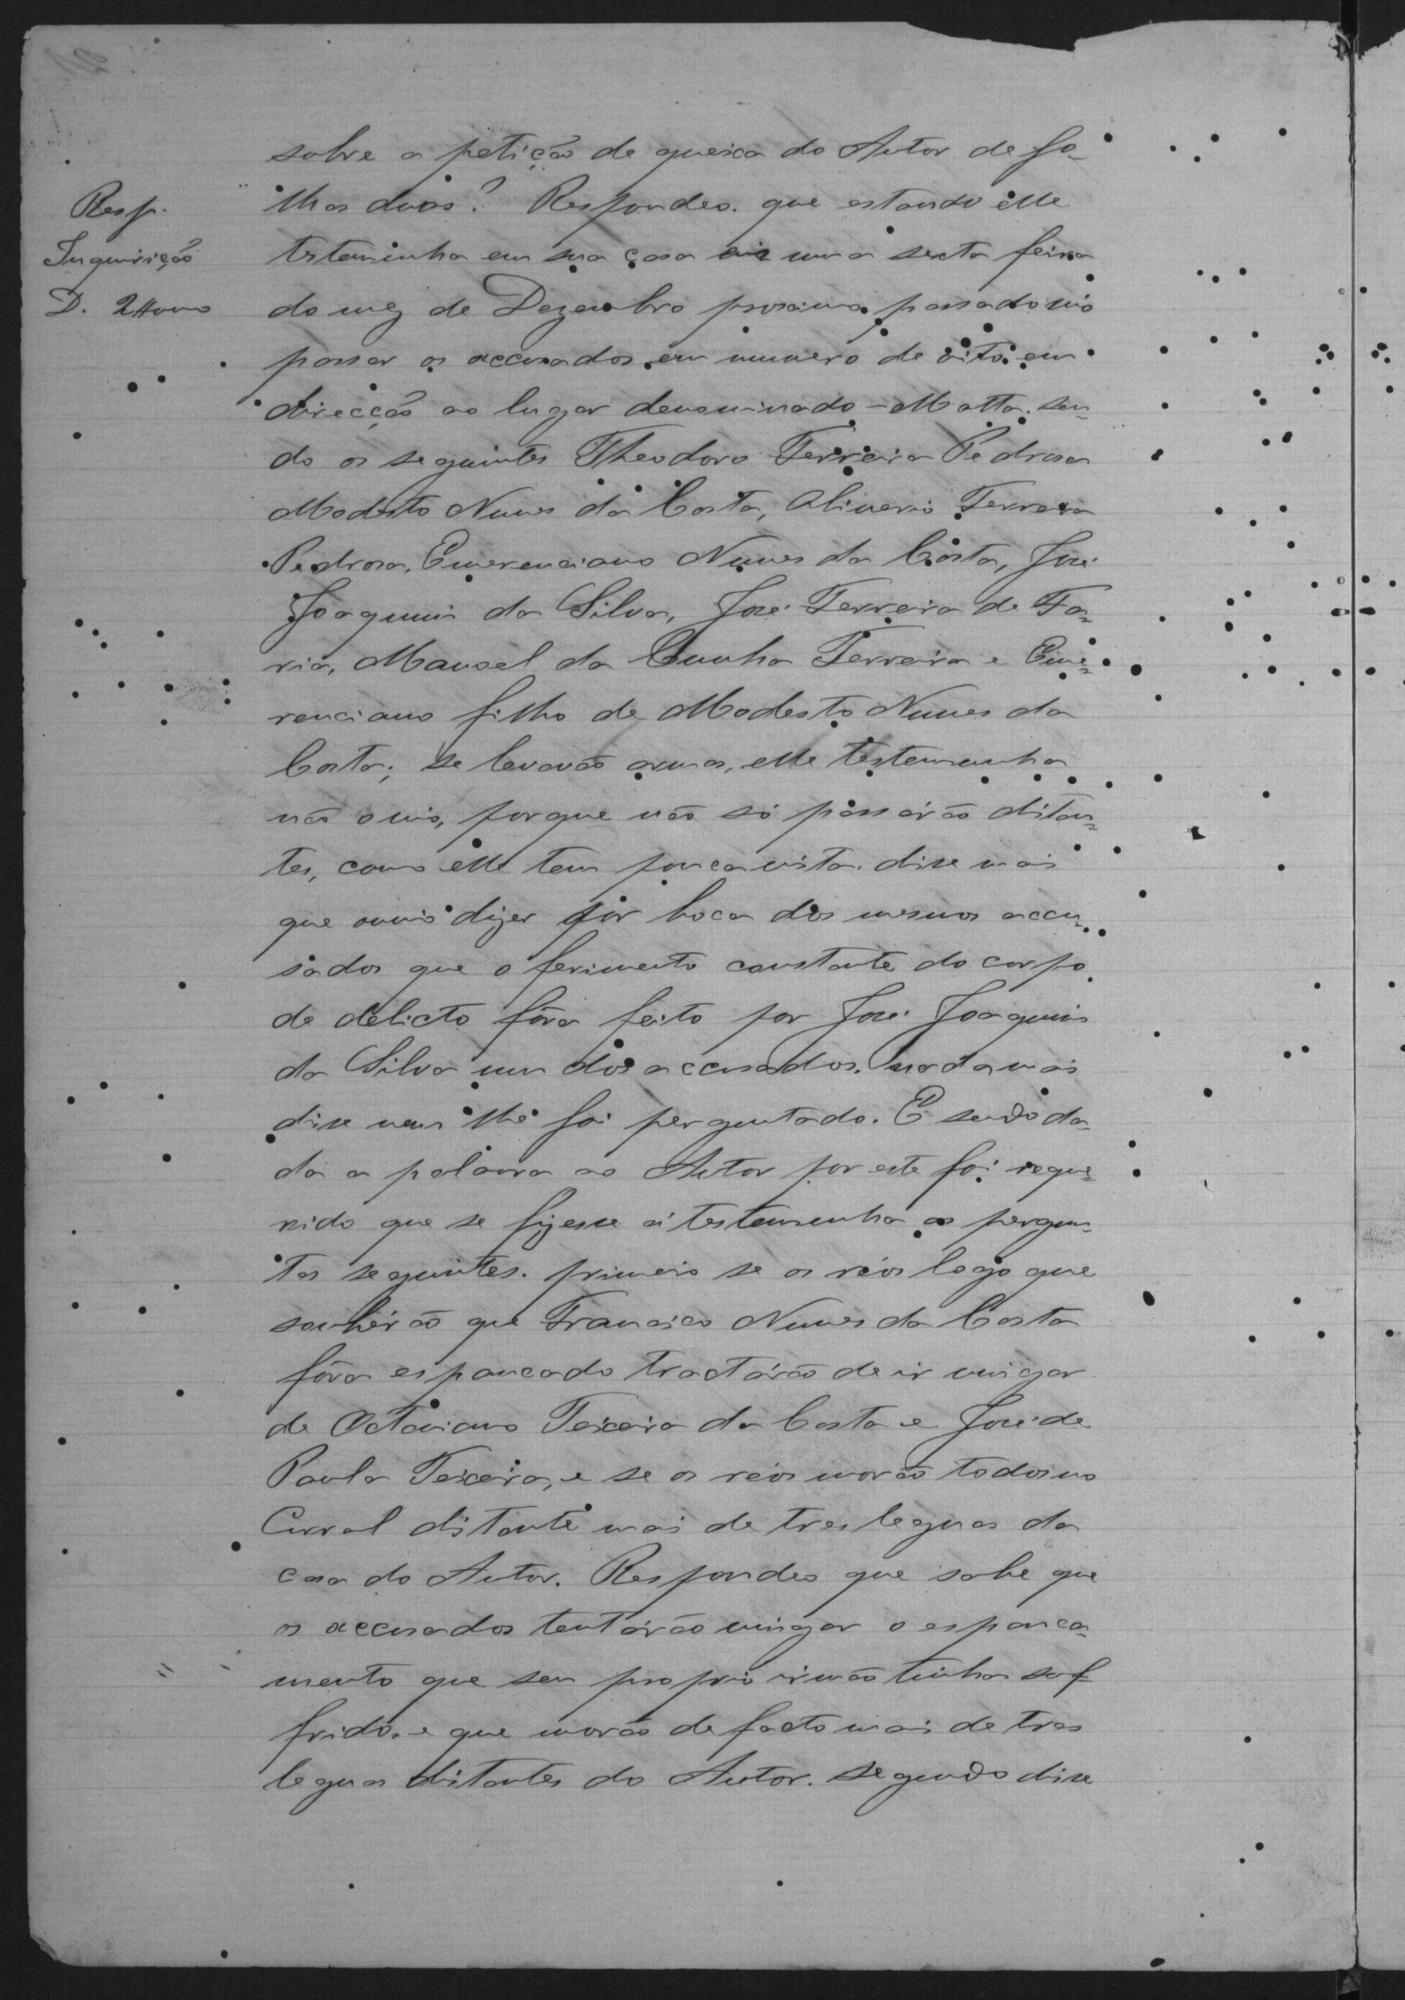 sobre a petição de queixa do Autor de fo-
lhas duas? Respondeo. que estando elle
Resp.
Inquirição
D.
testeminha em sua casa em uma sexta feira
do mez de Dezembro proximo passado vio
passar os accusados em numero de oito em
direcção ao lugar denominado - Matta. sen-
do os seguintes Theodoro Ferreira Pedrosa
Modesto Nunes da Costa, Oliverio Ferreira
Pedrosa, Emerenciano Nunes da Costa, José
Joaquim da Silva, José Ferreira de Fa-
ria, Manoel da Cunha Ferreira e Eme-
renciano filho de Modesto Nunes da
Costa; se levavão armas, elle testemunha
não o vio, porque não só passárão distan-
tes, como elle tem pouca vista. disse mais
que ouvio dizer por boca dos mesmos accu-
sados que o ferimento constante do corpo
de delicto fôra feito por José Joaquim
da Silva um dos accusados. nada mais
disse nem lhe foi perguntado. E sendo da-
da a palavra ao Autor por este foi reque-
rido que se fizesse á testemunha as pergun-
tas seguintes. primeiro se os réos logo que
souberão que Francisco Nunes da Costa
fôra espancado tractárão de ir vingar
de Octaviano Teixeira da Costa e José de
Paula Teixeira, e se os réos morão todos no
Curral distante mais de tres leguas da
casa do Autor. Respondeo que sabe que
os accusados tentárão vingar o espanca-
mento que seu proprio irmão tinha sof-
frido, e que morão de facto mais de tres
leguas distantes do Autor. segundo disse